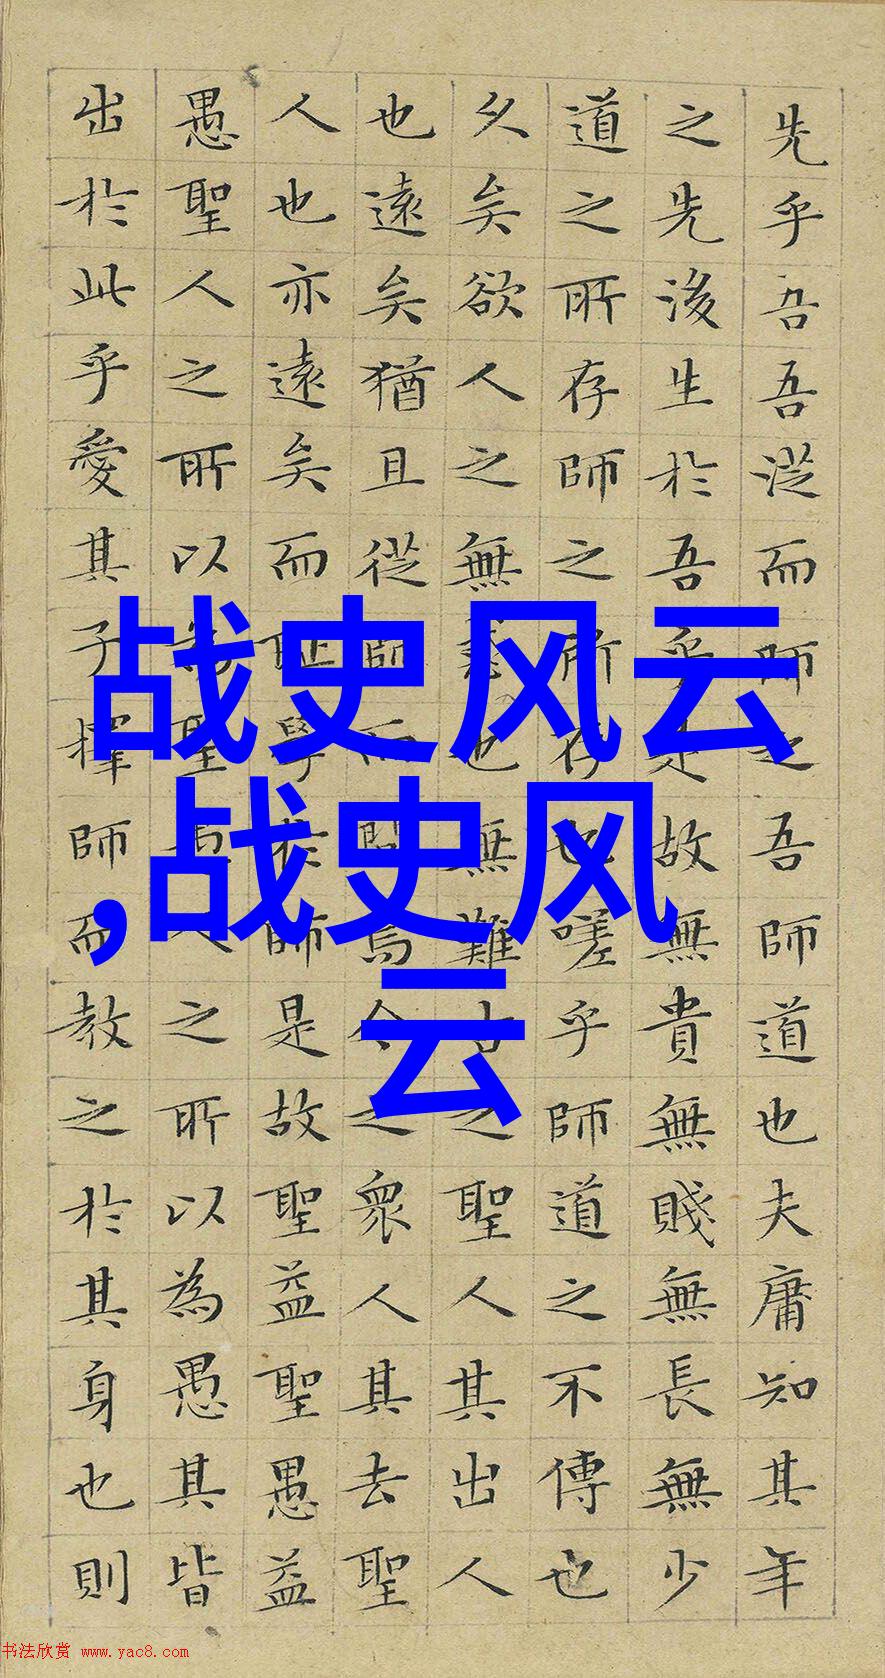 先乎吾吾從而師之吾師道也夫庸知其年
之先後生於吾乎是故無貴無賤無長無少
道之所存師之所存也嗟乎師道之不傳也
久矣欲人之無惑也無難古之聖人其出人
也遠矣猶且從師而問焉今之衆人其去聖
人也亦遠矣而恥學於師是故聖益聖愚益
愚聖人之所以為聖愚人之所以為愚其皆
出於此乎愛其子擇師而教之於其身也則
战史风云
,战史风
云
书法欣赏 www.yac8.com